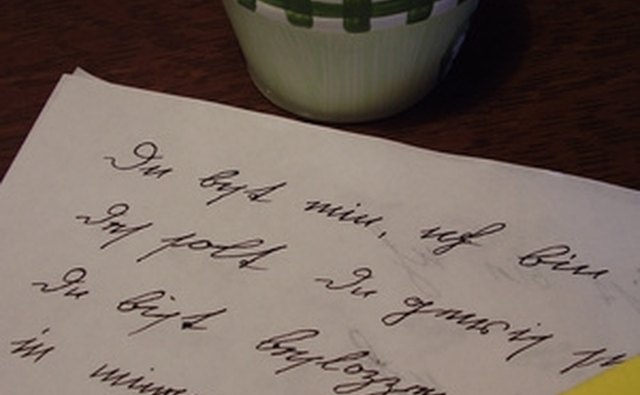 Du bist min, ich bin
Des solt Du gewis si
Du bist beslozzen
in mine